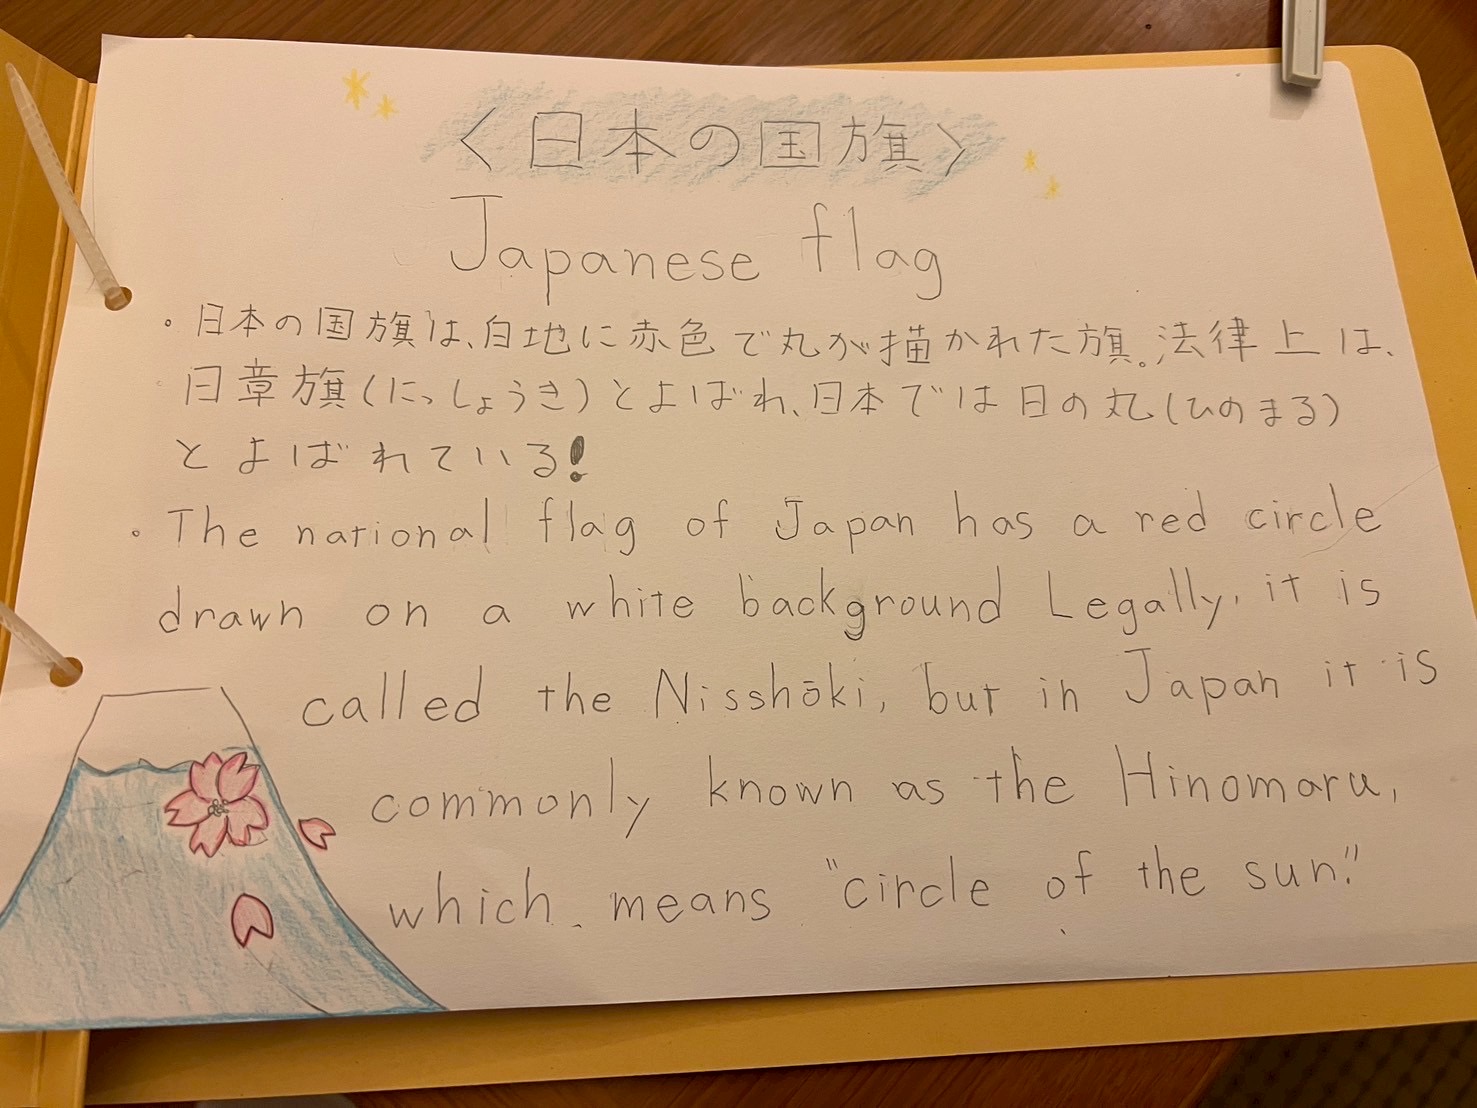 〈日本の国旗〉
Japanese flag
・日本の国旗は、白地に赤色で丸が描かれた旗。法律上は、
日章旗(にっしょうき)とよばれ、日本では日の丸(ひのまる)
とよばれている!
・The national flag of Japan has a red circle
drawn on a white background Legally, it is
called the Nisshōki, but in Japan it is
commonly known as the Hinomaru,
which means "circle of the sun."